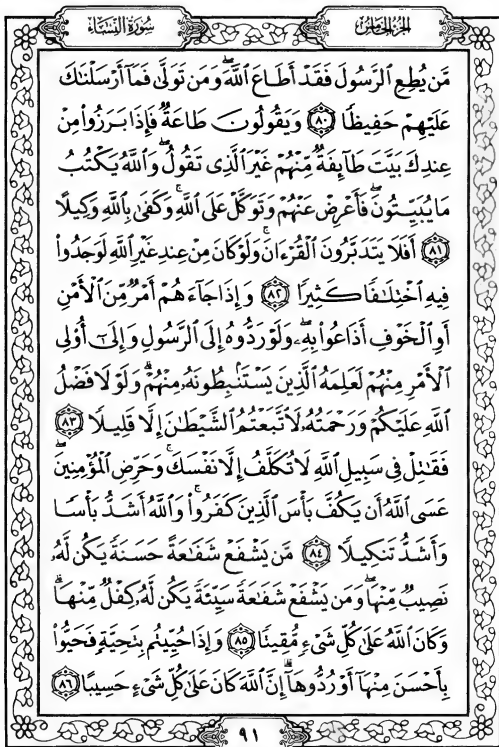 سُورَةُ النِّسَاءِ
الجُزْءُ الخَامِسُ
مَّن يُطِعِ ٱلرَّسُولَ فَقَدْ أَطَاعَ ٱللَّهَ ۖ وَمَن تَوَلَّىٰ فَمَآ أَرْسَلْنَـٰكَ
عَلَيْهِمْ حَفِيظًا ٨٠ وَيَقُولُونَ طَاعَةٌ فَإِذَا بَرَزُوا۟ مِنْ
عِندِكَ بَيَّتَ طَآئِفَةٌ مِّنْهُمْ غَيْرَ ٱلَّذِى تَقُولُ ۖ وَٱللَّهُ يَكْتُبُ
مَا يُبَيِّتُونَ ۖ فَأَعْرِضْ عَنْهُمْ وَتَوَكَّلْ عَلَى ٱللَّهِ ۚ وَكَفَىٰ بِٱللَّهِ وَكِيلًا
٨١ أَفَلَا يَتَدَبَّرُونَ ٱلْقُرْءَانَ ۚ وَلَوْ كَانَ مِنْ عِندِ غَيْرِ ٱللَّهِ لَوَجَدُوا۟
فِيهِ ٱخْتِلَـٰفًا كَثِيرًا ٨٢ وَإِذَا جَآءَهُمْ أَمْرٌ مِّنَ ٱلْأَمْنِ
أَوِ ٱلْخَوْفِ أَذَاعُوا۟ بِهِۦ ۖ وَلَوْ رَدُّوهُ إِلَى ٱلرَّسُولِ وَإِلَىٰٓ أُو۟لِى
ٱلْأَمْرِ مِنْهُمْ لَعَلِمَهُ ٱلَّذِينَ يَسْتَنۢبِطُونَهُۥ مِنْهُمْ ۗ وَلَوْلَا فَضْلُ
ٱللَّهِ عَلَيْكُمْ وَرَحْمَتُهُۥ لَٱتَّبَعْتُمُ ٱلشَّيْطَـٰنَ إِلَّا قَلِيلًا ٨٣
فَقَـٰتِلْ فِى سَبِيلِ ٱللَّهِ لَا تُكَلَّفُ إِلَّا نَفْسَكَ ۚ وَحَرِّضِ ٱلْمُؤْمِنِينَ ۖ
عَسَى ٱللَّهُ أَن يَكُفَّ بَأْسَ ٱلَّذِينَ كَفَرُوا۟ ۚ وَٱللَّهُ أَشَدُّ بَأْسًا
وَأَشَدُّ تَنكِيلًا ٨٤ مَّن يَشْفَعْ شَفَـٰعَةً حَسَنَةً يَكُن لَّهُۥ
نَصِيبٌ مِّنْهَا ۖ وَمَن يَشْفَعْ شَفَـٰعَةً سَيِّئَةً يَكُن لَّهُۥ كِفْلٌ مِّنْهَا ۗ
وَكَانَ ٱللَّهُ عَلَىٰ كُلِّ شَىْءٍ مُّقِيتًا ٨٥ وَإِذَا حُيِّيتُم بِتَحِيَّةٍ فَحَيُّوا۟
بِأَحْسَنَ مِنْهَآ أَوْ رُدُّوهَآ ۗ إِنَّ ٱللَّهَ كَانَ عَلَىٰ كُلِّ شَىْءٍ حَسِيبًا ٨٦
٩١